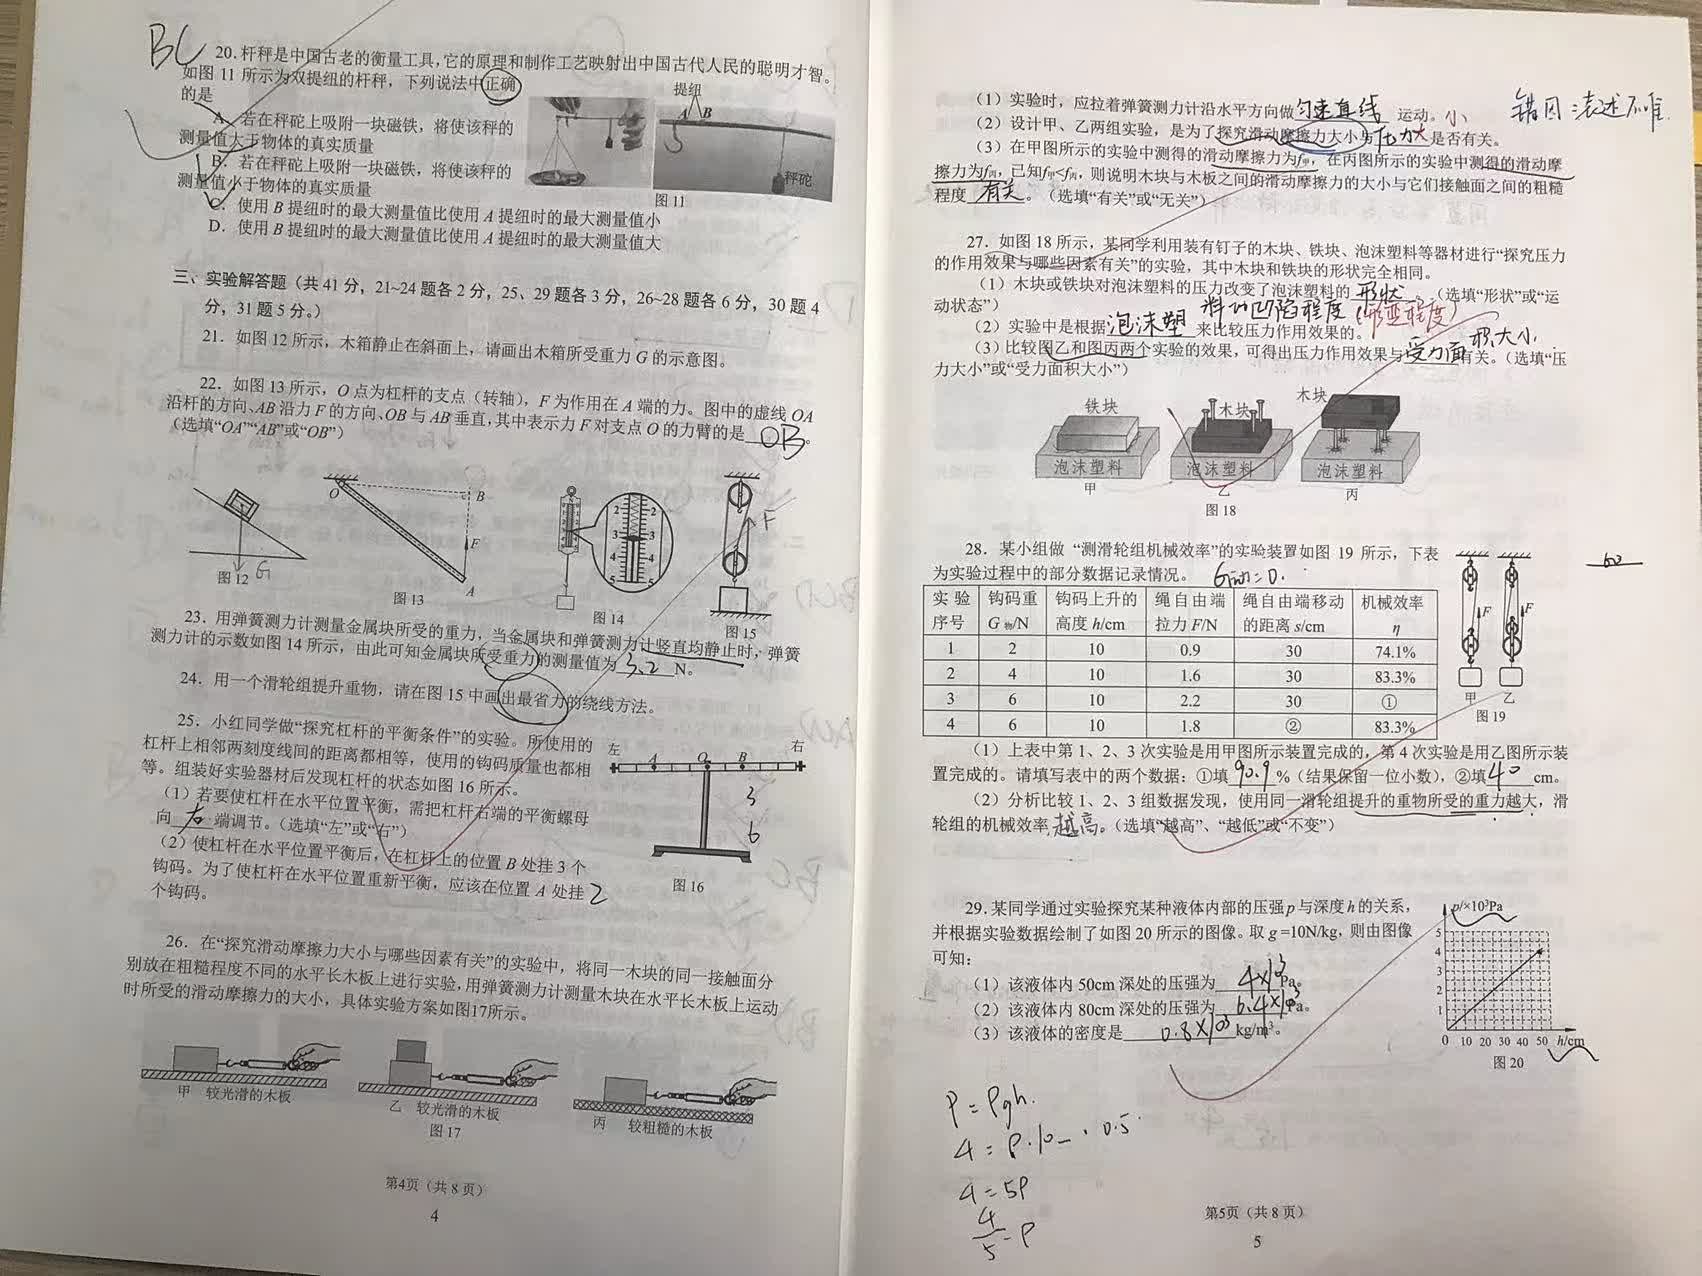 BC
20.杆秤是中国古老的衡量工具,它的原理和制作工艺映射出中国古代人民的聪明才智。
如图 11 所示为双提纽的杆秤，下列说法中正确
的是
提纽
A B
A．若在秤砣上吸附一块磁铁，将使该秤的
测量值大于物体的真实质量
B．若在秤砣上吸附一块磁铁，将使该秤的
测量值小于物体的真实质量
秤砣
图11
C．使用 B 提纽时的最大测量值比使用 A 提纽时的最大测量值小
D．使用 B 提纽时的最大测量值比使用 A 提纽时的最大测量值大
三、实验解答题（共 41 分，21~24 题各 2 分，25、29 题各 3 分，26~28 题各 6 分，30 题 4
分，31题 5 分。）
21．如图 12 所示，木箱静止在斜面上，请画出木箱所受重力 G 的示意图。
22．如图 13 所示，O 点为杠杆的支点（转轴），F 为作用在 A 端的力。图中的虚线 OA
沿杆的方向、AB 沿力 F 的方向、OB 与 AB 垂直,其中表示力 F 对支点 O 的力臂的是 OB 。
（选填“OA”“AB”或“OB”）
G
图12
O B F A
图13
2 2
3 3
4 4
5 5
图14
F
图15
23．用弹簧测力计测量金属块所受的重力，当金属块和弹簧测力计竖直均静止时，弹簧
测力计的示数如图 14 所示，由此可知金属块所受重力的测量值为 3.2 N。
24．用一个滑轮组提升重物，请在图 15 中画出最省力的绕线方法。
25．小红同学做“探究杠杆的平衡条件”的实验。所使用的
杠杆上相邻两刻度线间的距离都相等，使用的钩码质量也都相
等。组装好实验器材后发现杠杆的状态如图 16 所示。
（1）若要使杠杆在水平位置平衡，需把杠杆右端的平衡螺母
向 右 端调节。（选填“左”或“右”）
（2）使杠杆在水平位置平衡后，在杠杆上的位置 B 处挂 3 个
钩码。为了使杠杆在水平位置重新平衡，应该在位置 A 处挂 2
个钩码。
左 右
A O B
3
6
图16
26．在“探究滑动摩擦力大小与哪些因素有关”的实验中，将同一木块的同一接触面分
别放在粗糙程度不同的水平长木板上进行实验,用弹簧测力计测量木块在水平长木板上运动
时所受的滑动摩擦力的大小，具体实验方案如图17所示。
甲 较光滑的木板
乙 较光滑的木板
丙 较粗糙的木板
图17
第4页（共 8 页）
4
（1）实验时，应拉着弹簧测力计沿水平方向做 匀速直线 运动。小
错因:表述不准
（2）设计甲、乙两组实验，是为了探究滑动摩擦力大小与 压力大 是否有关。
（3）在甲图所示的实验中测得的滑动摩擦力为f甲，在丙图所示的实验中测得的滑动摩
擦力为f丙，已知f甲<f丙，则说明木块与木板之间的滑动摩擦力的大小与它们接触面之间的粗糙
程度 有关 。（选填“有关”或“无关”）
27．如图 18 所示，某同学利用装有钉子的木块、铁块、泡沫塑料等器材进行“探究压力
的作用效果与哪些因素有关”的实验，其中木块和铁块的形状完全相同。
（1）木块或铁块对泡沫塑料的压力改变了泡沫塑料的 形状 （选填“形状”或“运
动状态”）
料的凹陷程度（形变程度）
（2）实验中是根据 泡沫塑 来比较压力作用效果的。
积大小.
（3）比较图乙和图丙两个实验的效果，可得出压力作用效果与 受力面 有关。（选填“压
力大小”或“受力面积大小”）
铁块 木块 木块
泡沫塑料 泡沫塑料 泡沫塑料
甲 乙 丙
图18
28．某小组做 “测滑轮组机械效率”的实验装置如图 19 所示，下表
为实验过程中的部分数据记录情况。 G动=0.
60
实 验 序号 钩码重 G物/N 钩码上升的 高度 h/cm 绳自由端 拉力 F/N 绳自由端移动 的距离 s/cm 机械效率 η
1 2 10 0.9 30 74.1%
2 4 10 1.6 30 83.3%
3 6 10 2.2 30 ①
4 6 10 1.8 ② 83.3%
F F
甲 乙
图19
（1）上表中第 1、2、3 次实验是用甲图所示装置完成的，第 4 次实验是用乙图所示装
置完成的。请填写表中的两个数据：①填 90.9 %（结果保留一位小数），②填 40 cm。
（2）分析比较 1、2、3 组数据发现，使用同一滑轮组提升的重物所受的重力越大，滑
轮组的机械效率 越高 。（选填“越高”、“越低”或“不变”）
29.某同学通过实验探究某种液体内部的压强p与深度h的关系，
并根据实验数据绘制了如图 20 所示的图像。取 g =10N/kg，则由图像
可知：
（1）该液体内 50cm 深处的压强为 4×10³ Pa。
（2）该液体内 80cm 深处的压强为 6.4×10³ Pa。
（3）该液体的密度是 0.8×10³ kg/m³。
p/×10³Pa
5
4
3
2
1
0 10 20 30 40 50 h/cm
图20
P=ρgh.
4=ρ·10 · 0.5
4=5ρ
4/5=ρ
第5页（共 8 页）
5